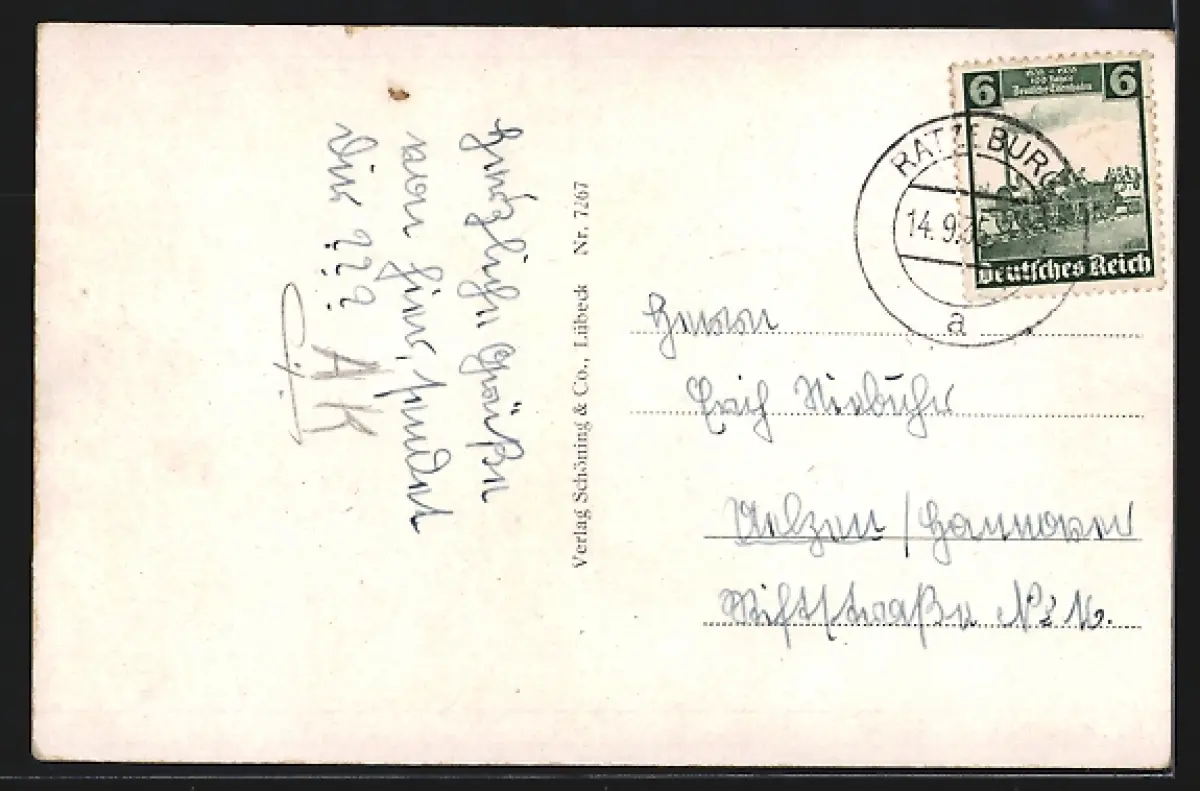 Herzliche Grüße
von hier, sendet
Dir ???
AK
Verlag Schöning & Co., Lübeck Nr. 7267
6 1835 – 1935 6
100 Jahre
Deutsche Eisenbahn
Deutsches Reich
RATZEBURG
14.9.35
a
Herrn
Erich Niebuhr
Uelzen / Hannover
Stiftstraße No 16.